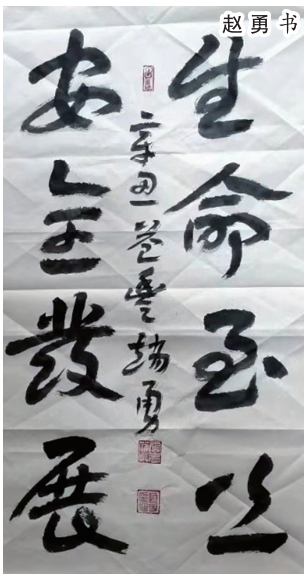 赵勇书
生命至上
安全发展
辛丑
赵勇